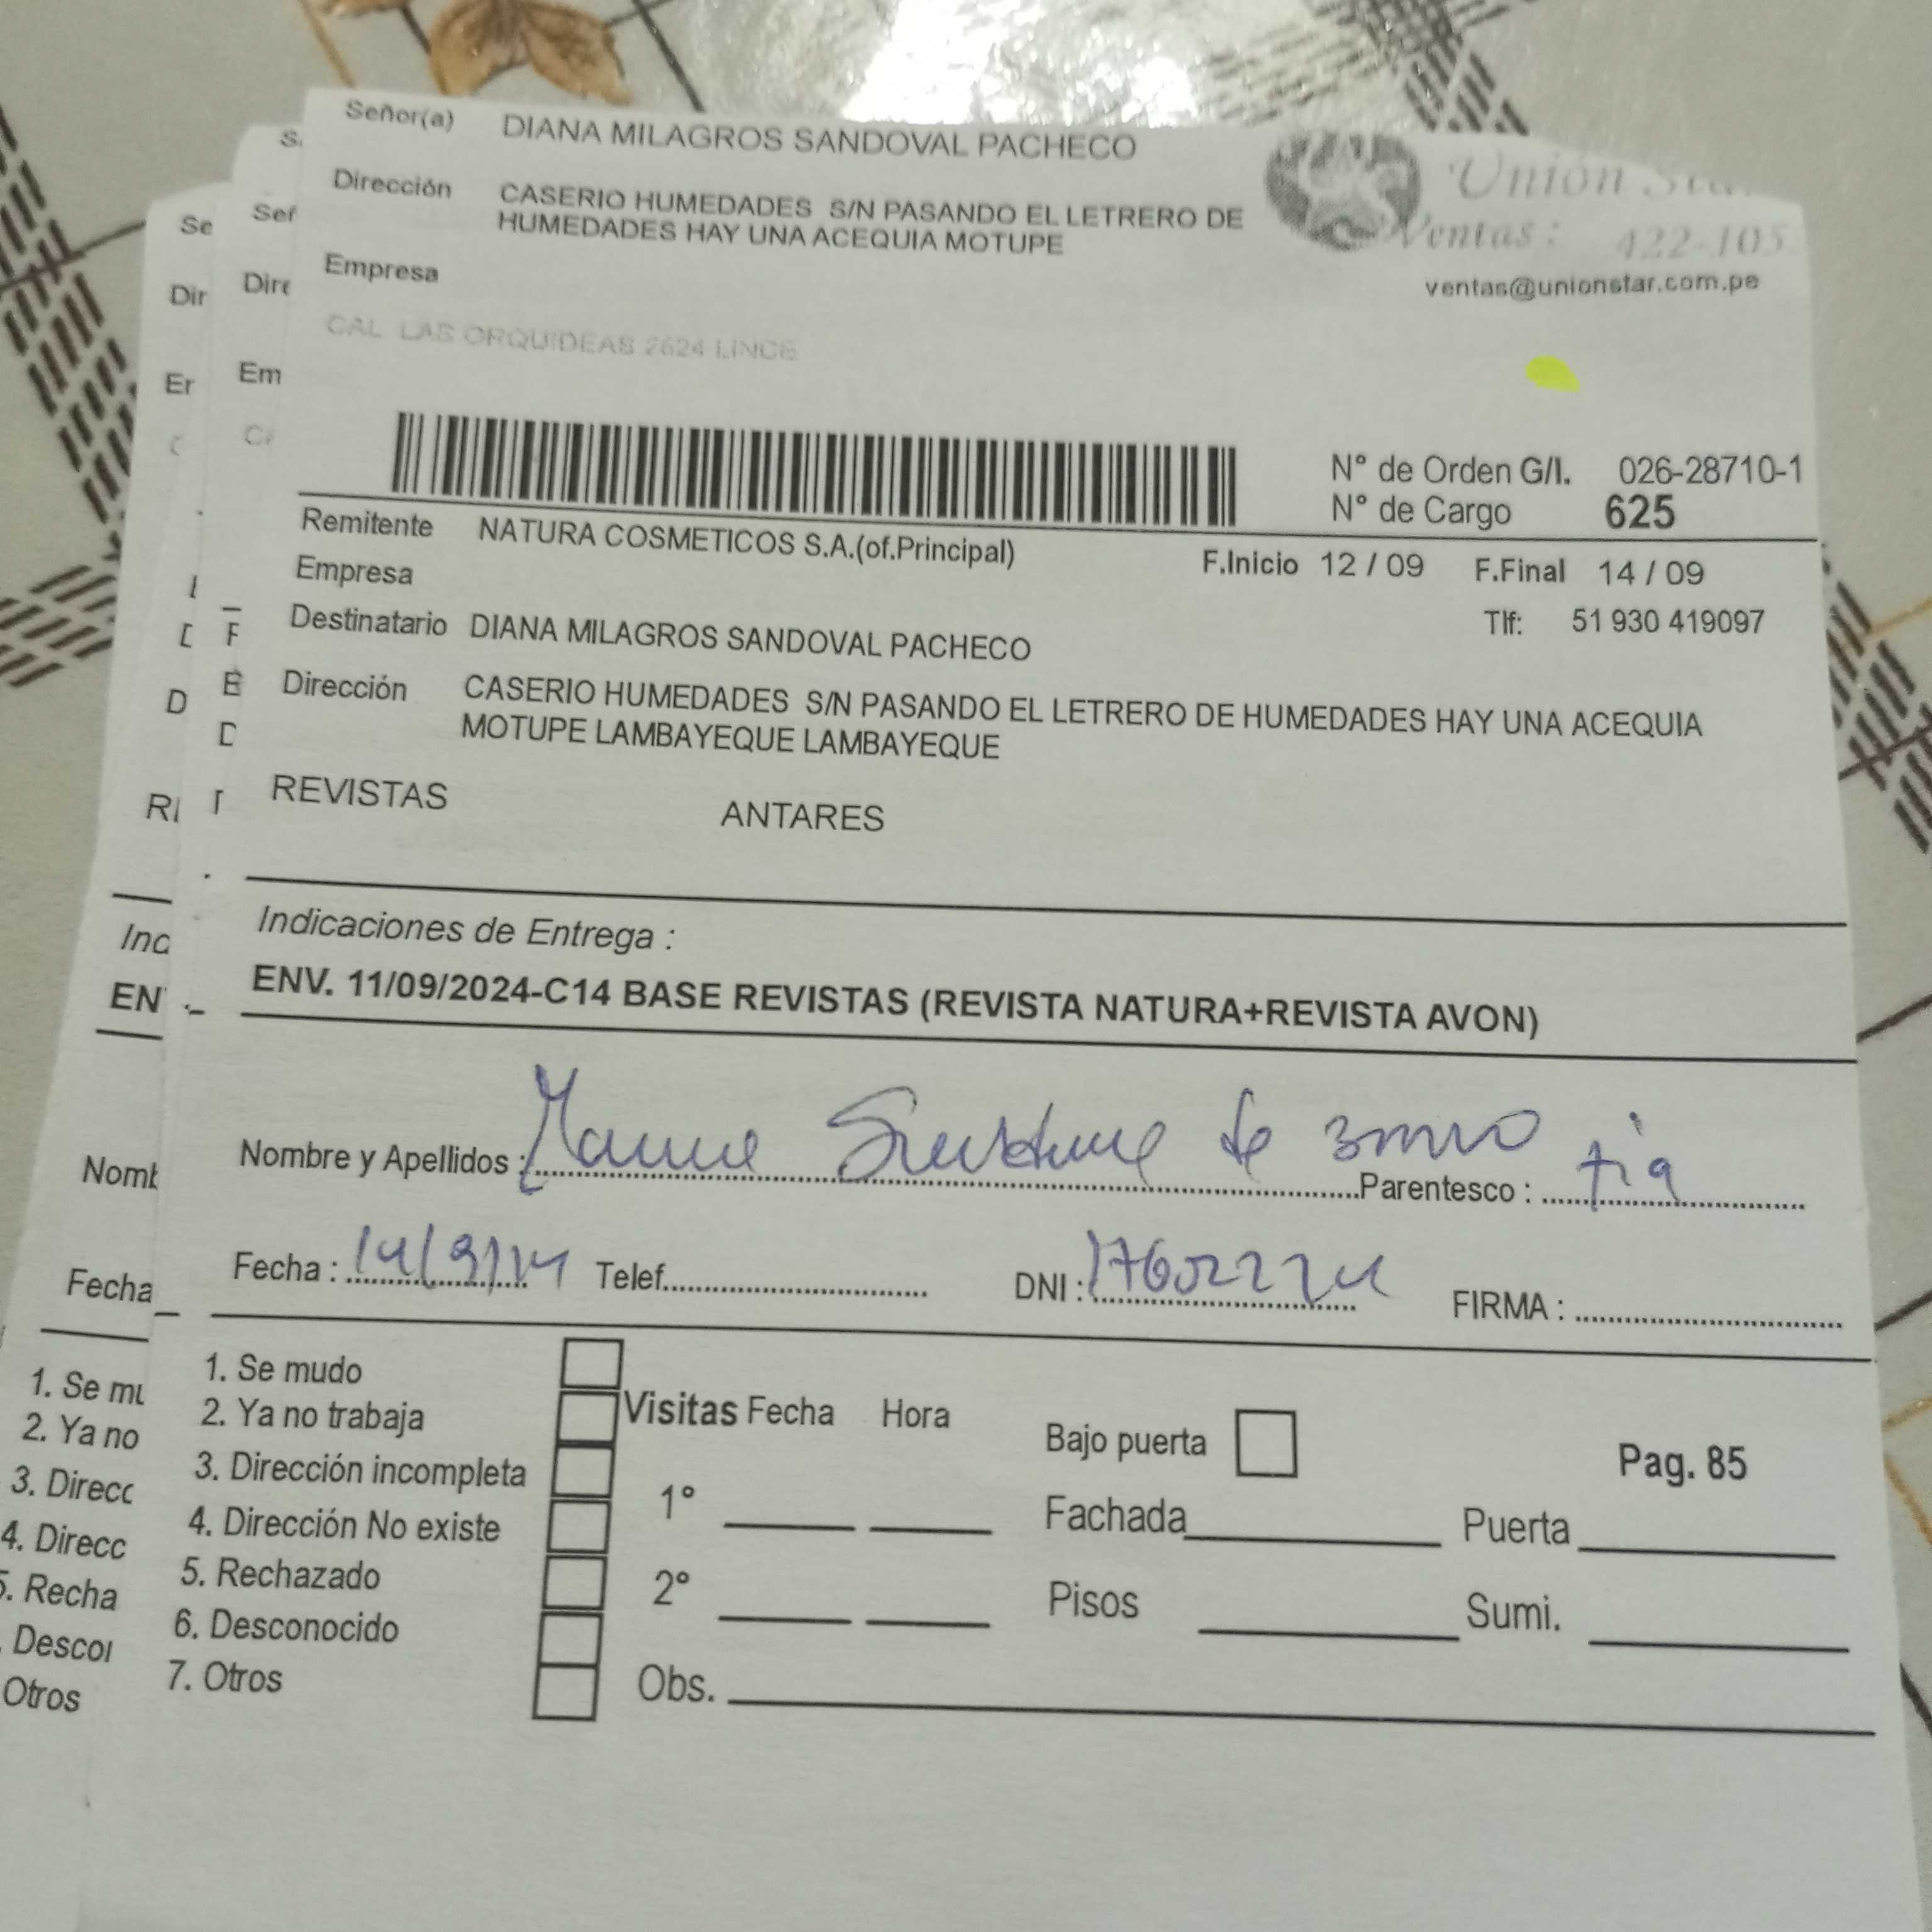 Señor(a) DIANA MILAGROS SANDOVAL PACHECO
Dirección CASERIO HUMEDADES S/N PASANDO EL LETRERO DE
HUMEDADES HAY UNA ACEQUIA MOTUPE
Empresa
Union
Ventas: 422-105
ventas@unionstar.com.pe
CAL LAS ORQUIDEAS 2624 LINCE
N° de Orden G/I. 026-28710-1
N° de Cargo 625
Remitente NATURA COSMETICOS S.A.(of.Principal) F.Inicio 12 / 09 F.Final 14 / 09
Empresa
Tlf: 51 930 419097
Destinatario DIANA MILAGROS SANDOVAL PACHECO
Dirección CASERIO HUMEDADES S/N PASANDO EL LETRERO DE HUMEDADES HAY UNA ACEQUIA
MOTUPE LAMBAYEQUE LAMBAYEQUE
REVISTAS ANTARES
Indicaciones de Entrega :
ENV. 11/09/2024-C14 BASE REVISTAS (REVISTA NATURA+REVISTA AVON)
Nombre y Apellidos : Parentesco : tia
Fecha : Telef. DNI : FIRMA :
1. Se mudo
2. Ya no trabaja
3. Dirección incompleta
4. Dirección No existe
5. Rechazado
6. Desconocido
7. Otros
Visitas Fecha Hora
1°
2°
Obs.
Bajo puerta Pag. 85
Fachada Puerta
Pisos Sumi.
Se
Dir
Er
Sef
Dire
Em
RI
Inc
EN
Nomb
Fecha
1. Se mu
2. Ya no
3. Direcc
4. Direcc
5. Recha
Descor
Otros